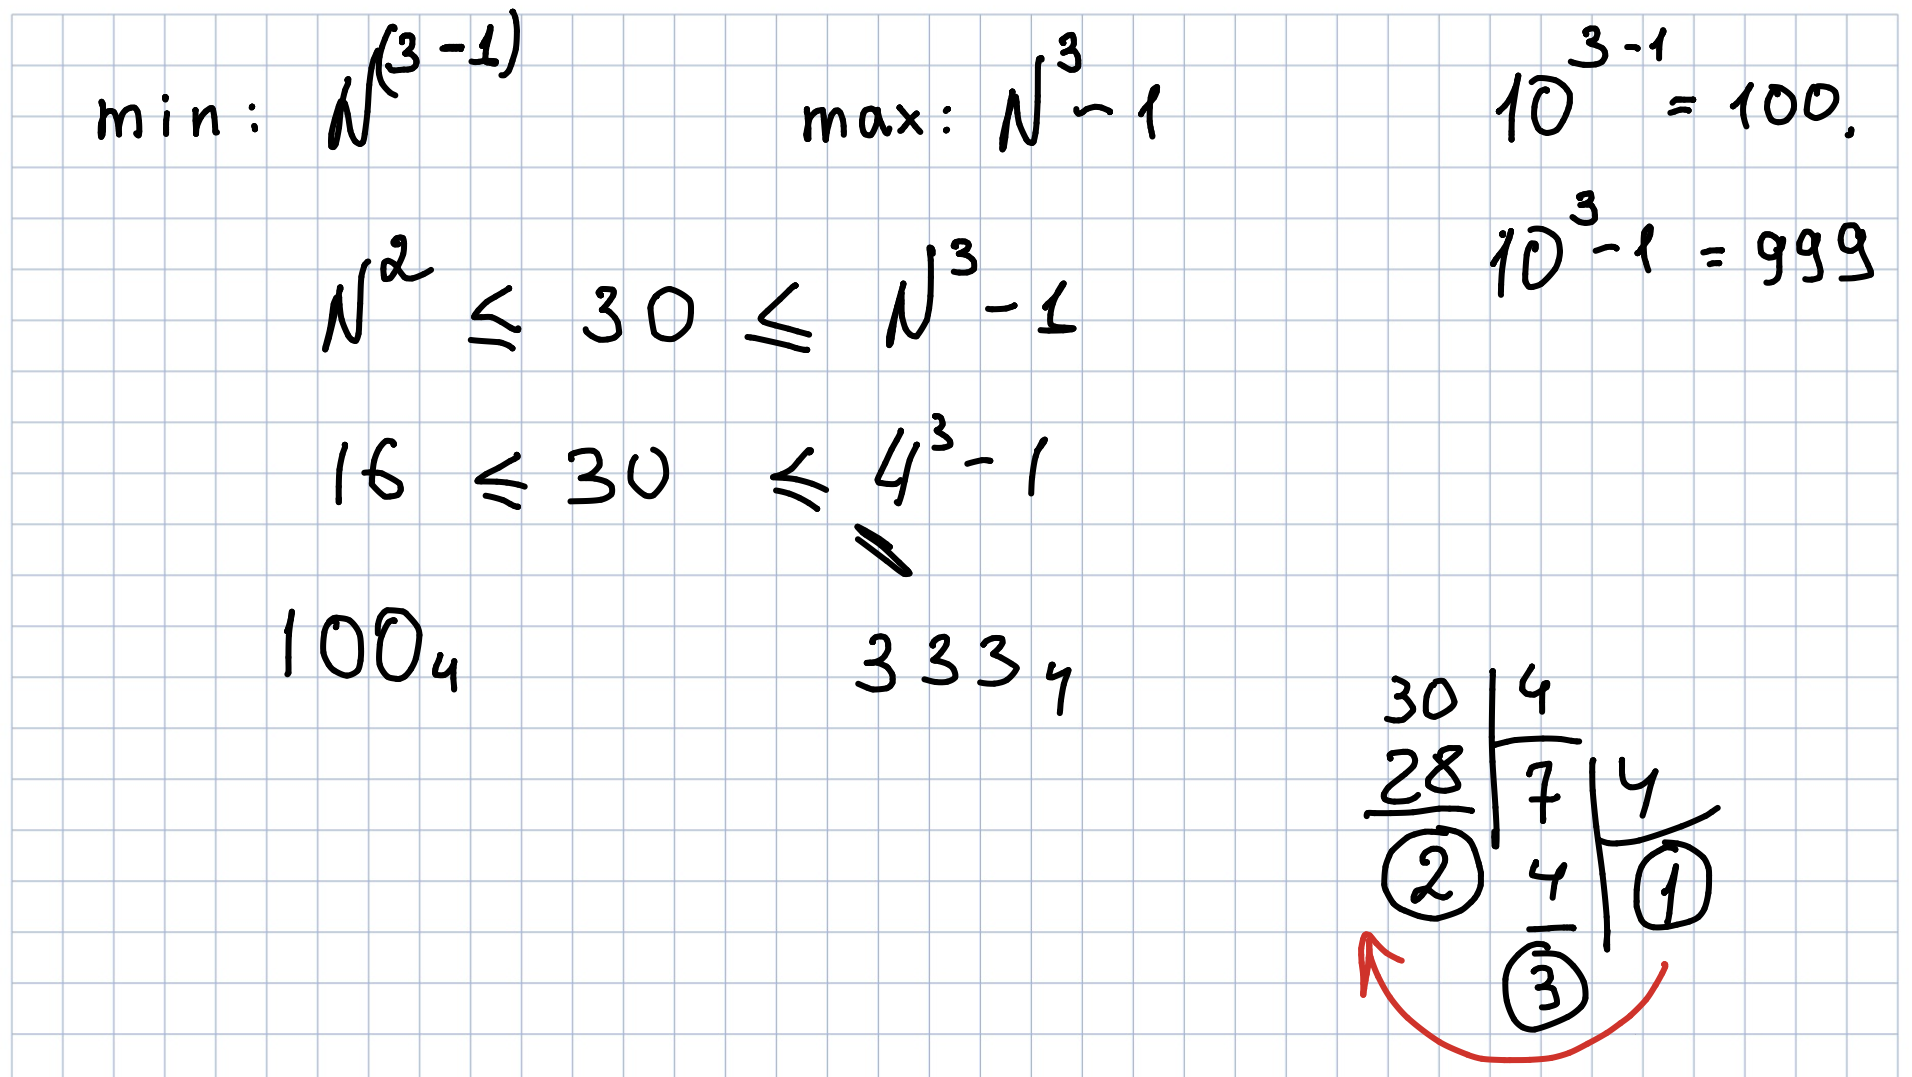 min: N^(3-1)  max: N^3 - 1  10^3-1 = 100.
10^3 - 1 = 999
N^2 ≤ 30 ≤ N^3 - 1
16 ≤ 30 ≤ 4^3 - 1
100₄  333₄
30 | 4
28 | 7 | 4
2  4  1
3